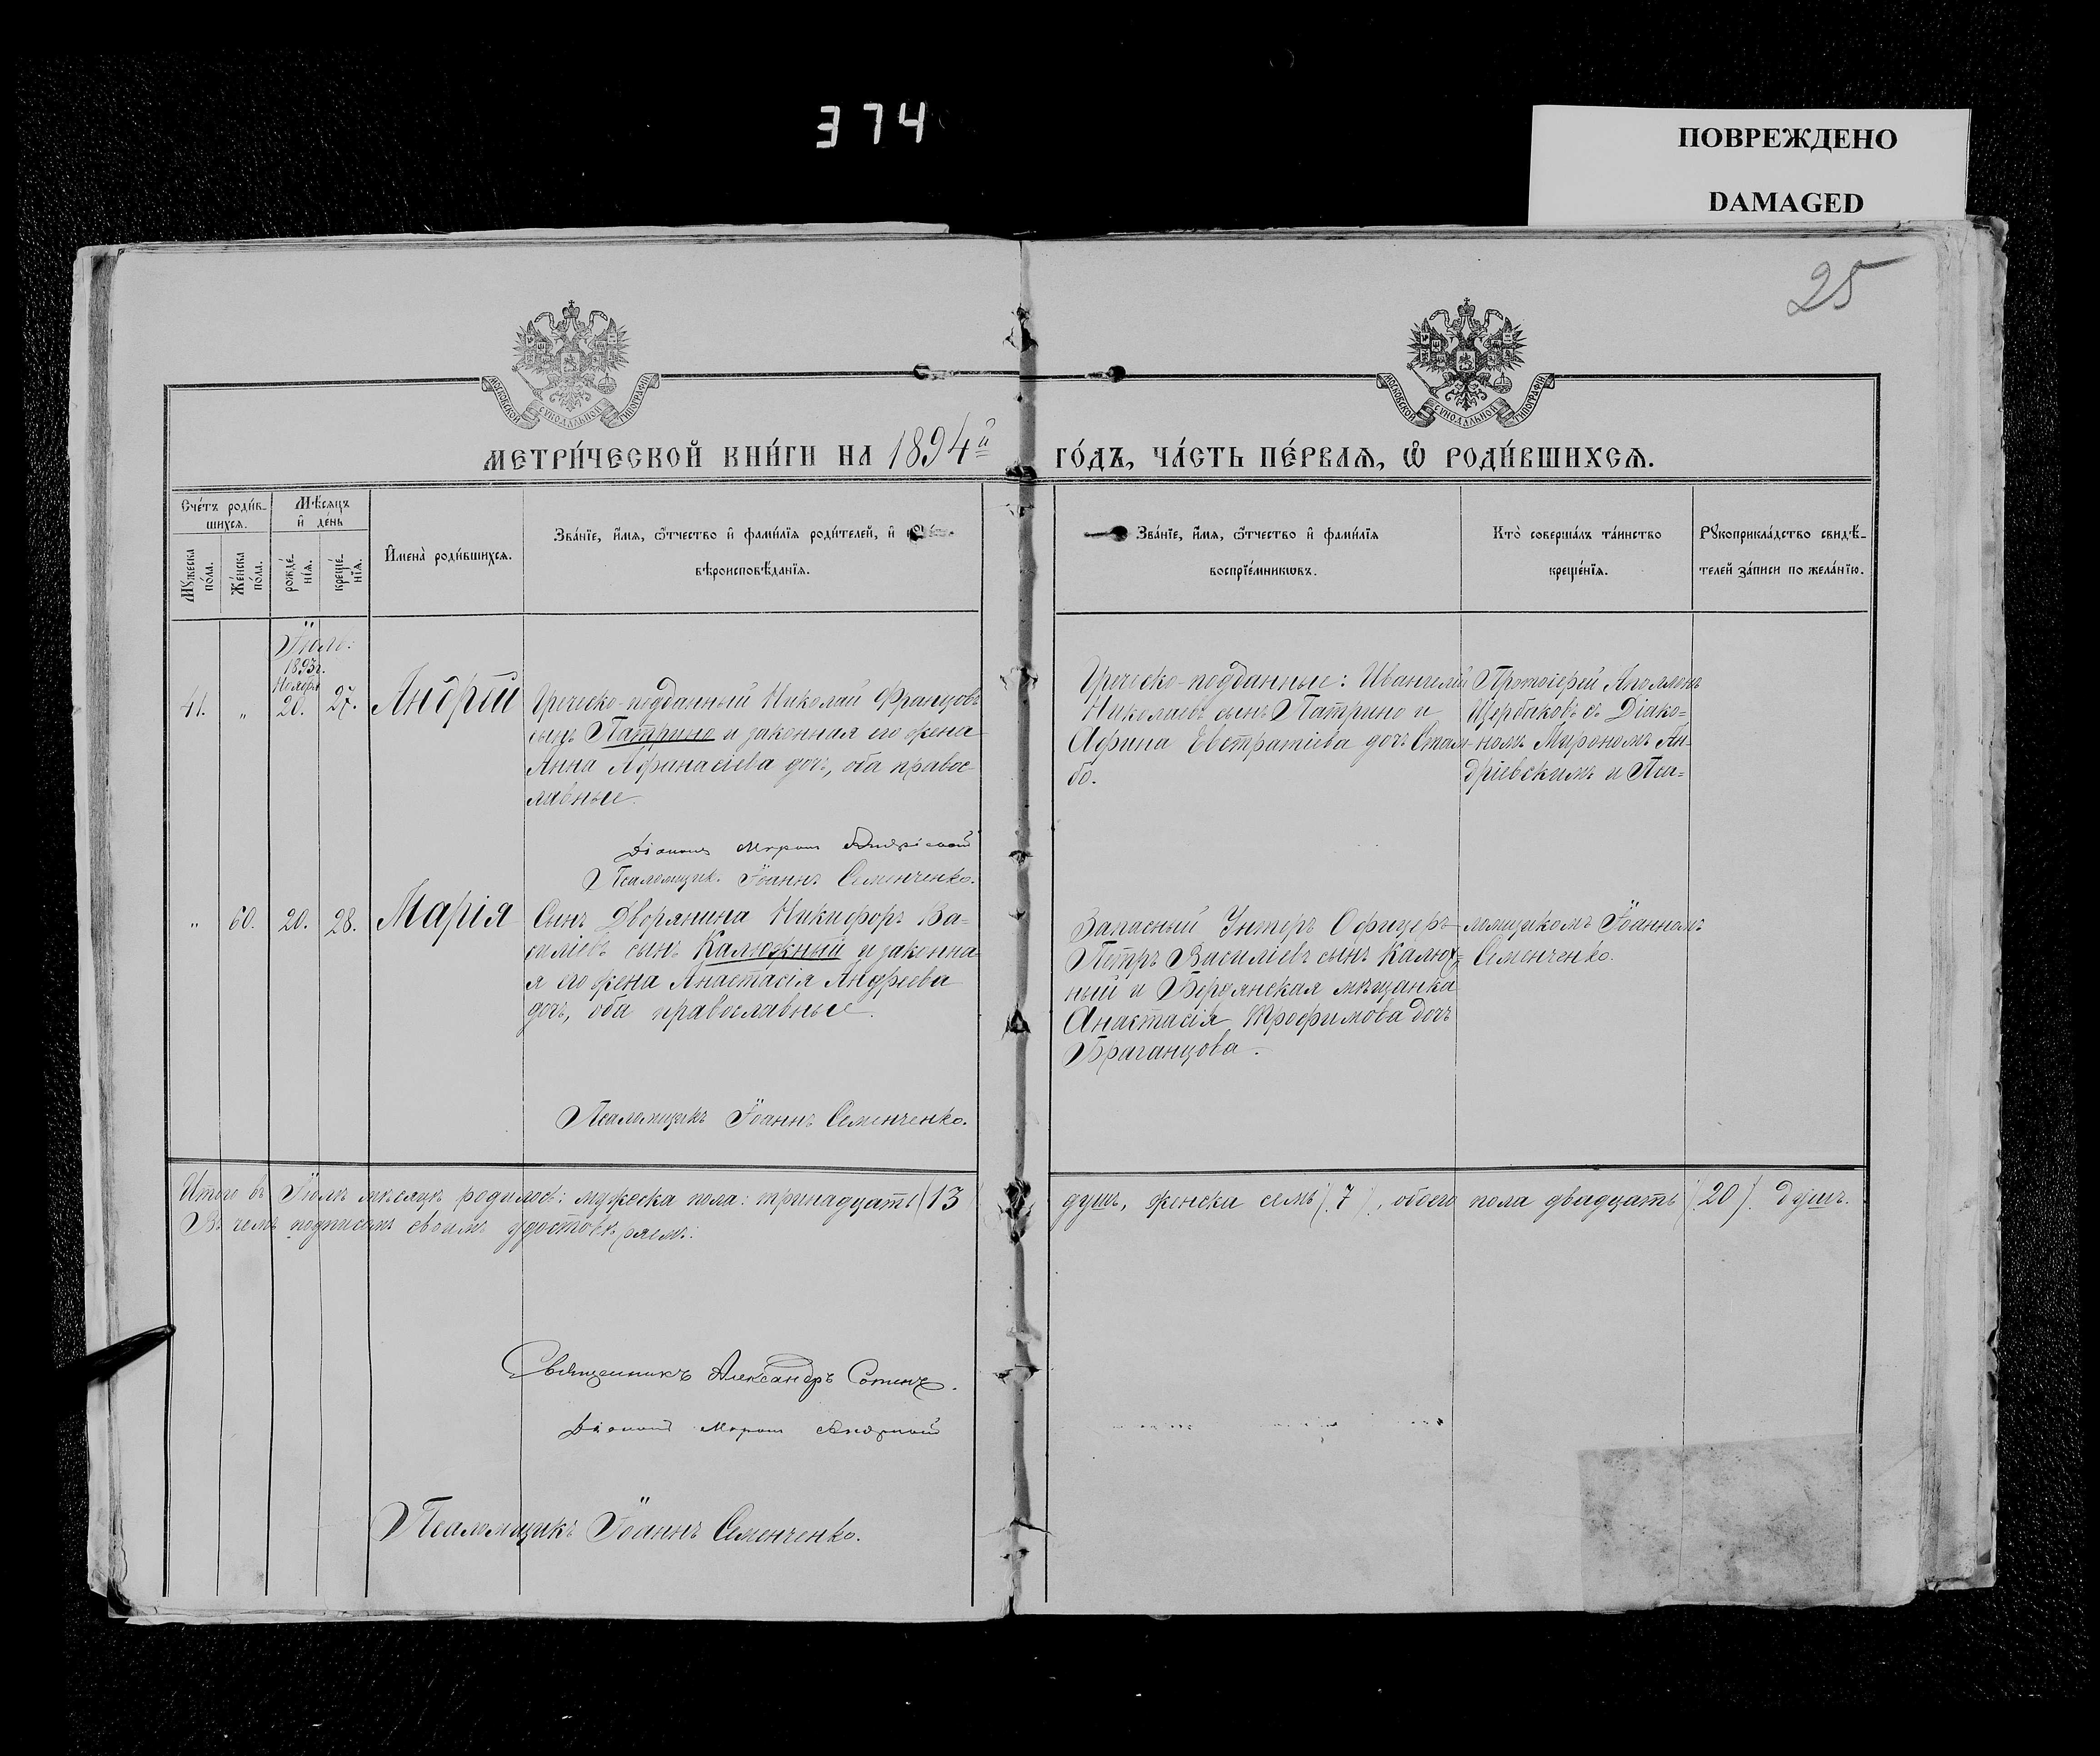 374
ПОВРЕЖДЕНО
DAMAGED
25
МОСКОВСКОЙ СѴНОДАЛЬНОЙ ТИПОГРАФІИ
МОСКОВСКОЙ СѴНОДАЛЬНОЙ ТИПОГРАФІИ
МЕТРИ́ЧЕСКОЙ КНИ́ГИ НА 1894й ГО́ДЪ, ЧА́СТЬ ПЕ́РВАѦ, Ѽ РОДИ́ВШИХСѦ.
Сче́тъ роди́в-
шихся.
Мѣ́сяцъ
и де́нь
Мꙋ́жеска
по́ла.
Же́нска
по́ла.
рожде́-
нїѧ.
креще́-
нїѧ.
Имена̀ роди́вшихсѧ.
Зва́нїе, и́мѧ, ѻ҆́тчество и фами́лїѧ роди́телей, и
вѣроисповѣ́данїѧ.
Зва́нїе, и́мѧ, ѻ҆́тчество и фами́лїѧ
воспрїе́мникѡвъ.
Кто̀ соверша́лъ та́инство
креще́нїѧ.
Рꙋкоприкла́дство свидѣ́-
телей за́писи по жела́нїю.
Іюль:
1893г.
Ноября
41. " 20. 27. Андрей
Греческо-подданный Николай Францовъ
сынъ Патрино и законная его жена
Анна Афанасіева дочь, оба правос-
лавные.
Діаконъ Миронъ Андріевскій
Псаломщикъ Іоаннъ Семенченко.
Греческо-подданные: Ивангелий
Николаевъ сынъ Патрино и
Афина Евстратіева дочь Стам-
бо.
Протоіерей Аполлонъ
Щербаковъ съ Діако-
номъ Мирономъ Ан-
дріевскимъ и Пса-
" 60. 20. 28. Марія
Сынъ Дворянина Никифоръ Ва-
силіевъ сынъ Калюжный и законна-
я его жена Анастасія Андреева
дочь, оба православные.
Псаломщикъ Іоаннъ Семенченко.
Запасный Унтеръ Офицеръ
Петръ Василіевъ сынъ Калюж-
ный и Бердянская мѣщанка
Анастасія Трофимова дочь
Браганцова.
ломщикомъ Іоанномъ
Семенченко.
Итого въ Іюлѣ мѣсяцѣ родилось: мужеска пола: тринадцать (13) душъ, женска семь (7), обоего пола двадцать (20) душъ.
Въ чемъ подписомъ своимъ удостовѣряемъ:
Священникъ Александръ
Діаконъ Миронъ Андріевскій
Псаломщикъ Іоаннъ Семенченко.